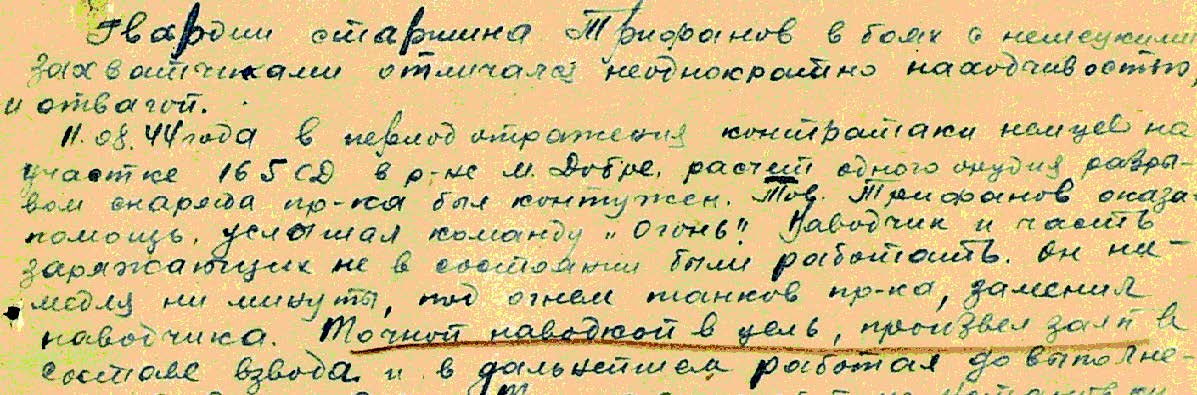 Гвардии старшина Трифанов в боях с немецкими
захватчиками отличался неоднократно находчивостью,
и отвагой.
11.08.44 года в период отражения контратаки немцев на
участке 165 СД в р-не м. Добре, расчет одного орудия разры-
вом снаряда пр-ка был контужен. Тов. Трифанов оказа
помощь, услышал команду "Огонь". Наводчик и часть
заряжающих не в состоянии были работать. Он не
медля ни минуты, под огнем танков пр-ка, заменил
наводчика. Точной наводкой в цель, произвел залп в
составе взвода и в дальнейшем работал до выполне-